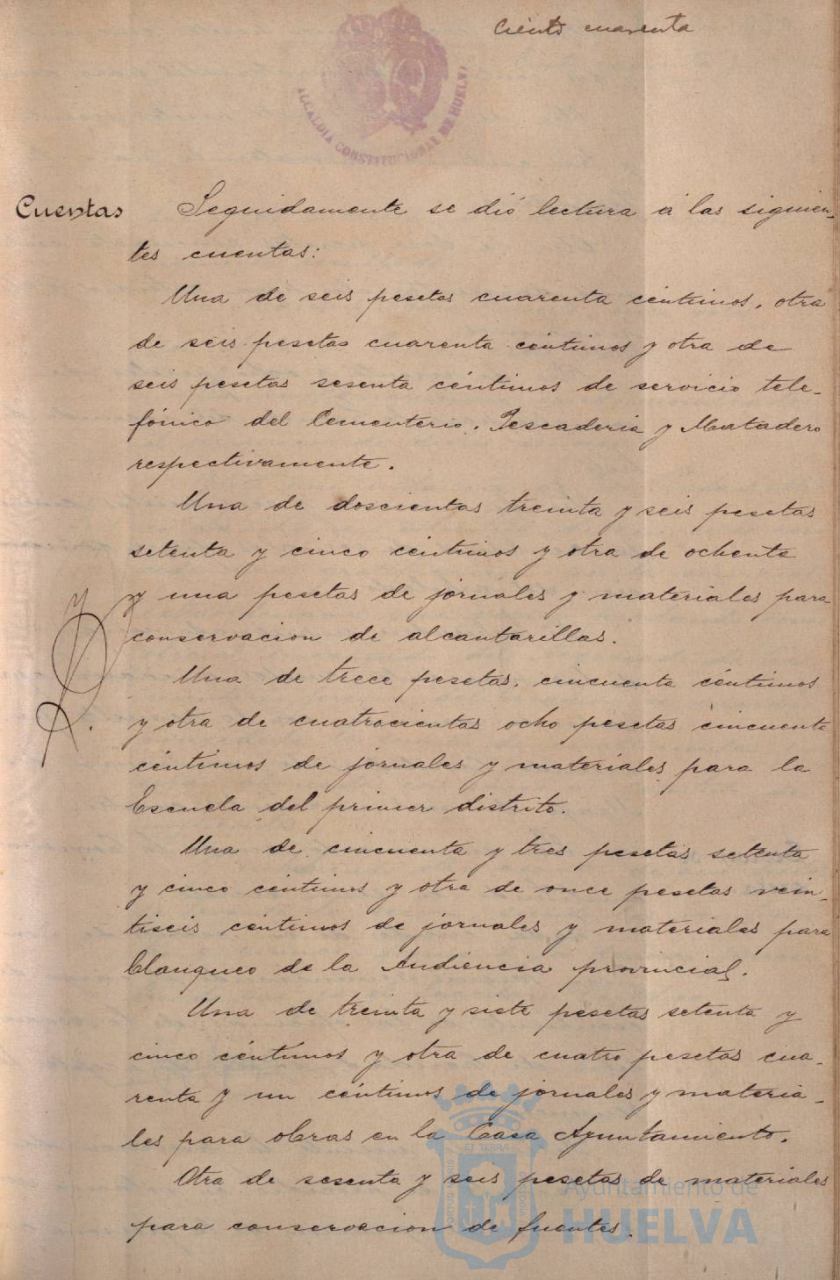 Ciento cuarenta
ALCALDIA CONSTITUCIONAL DE HUELVA
Cuentas
Seguidamente se dió lectura á las siguien-
tes cuentas:
Una de seis pesetas cuarenta céntimos, otra
de seis pesetas cuarenta céntimos y otra de
seis pesetas sesenta céntimos de servicio tele-
fónico del Cementerio, Pescaderia y Matadero
respectivamente.
Una de doscientas treinta y seis pesetas
setenta y cinco céntimos y otra de ochenta
y una pesetas de jornales y materiales para
conservacion de alcantarillas.
Una de trece pesetas, cincuenta céntimos
y otra de cuatrocientas ocho pesetas cincuenta
céntimos de jornales y materiales para la
Escuela del primer distrito.
Una de cincuenta y tres pesetas setenta
y cinco céntimos y otra de once pesetas vein-
tiseis céntimos de jornales y materiales para
blanqueo de la Audiencia provincial.
Una de treinta y siete pesetas setenta y
cinco céntimos y otra de cuatro pesetas cua-
renta y un céntimos de jornales y materia-
les para obras en la Casa Ayuntamiento.
Otra de sesenta y seis pesetas de materiales
para conservacion de fuentes.
Ayuntamiento de
HUELVA